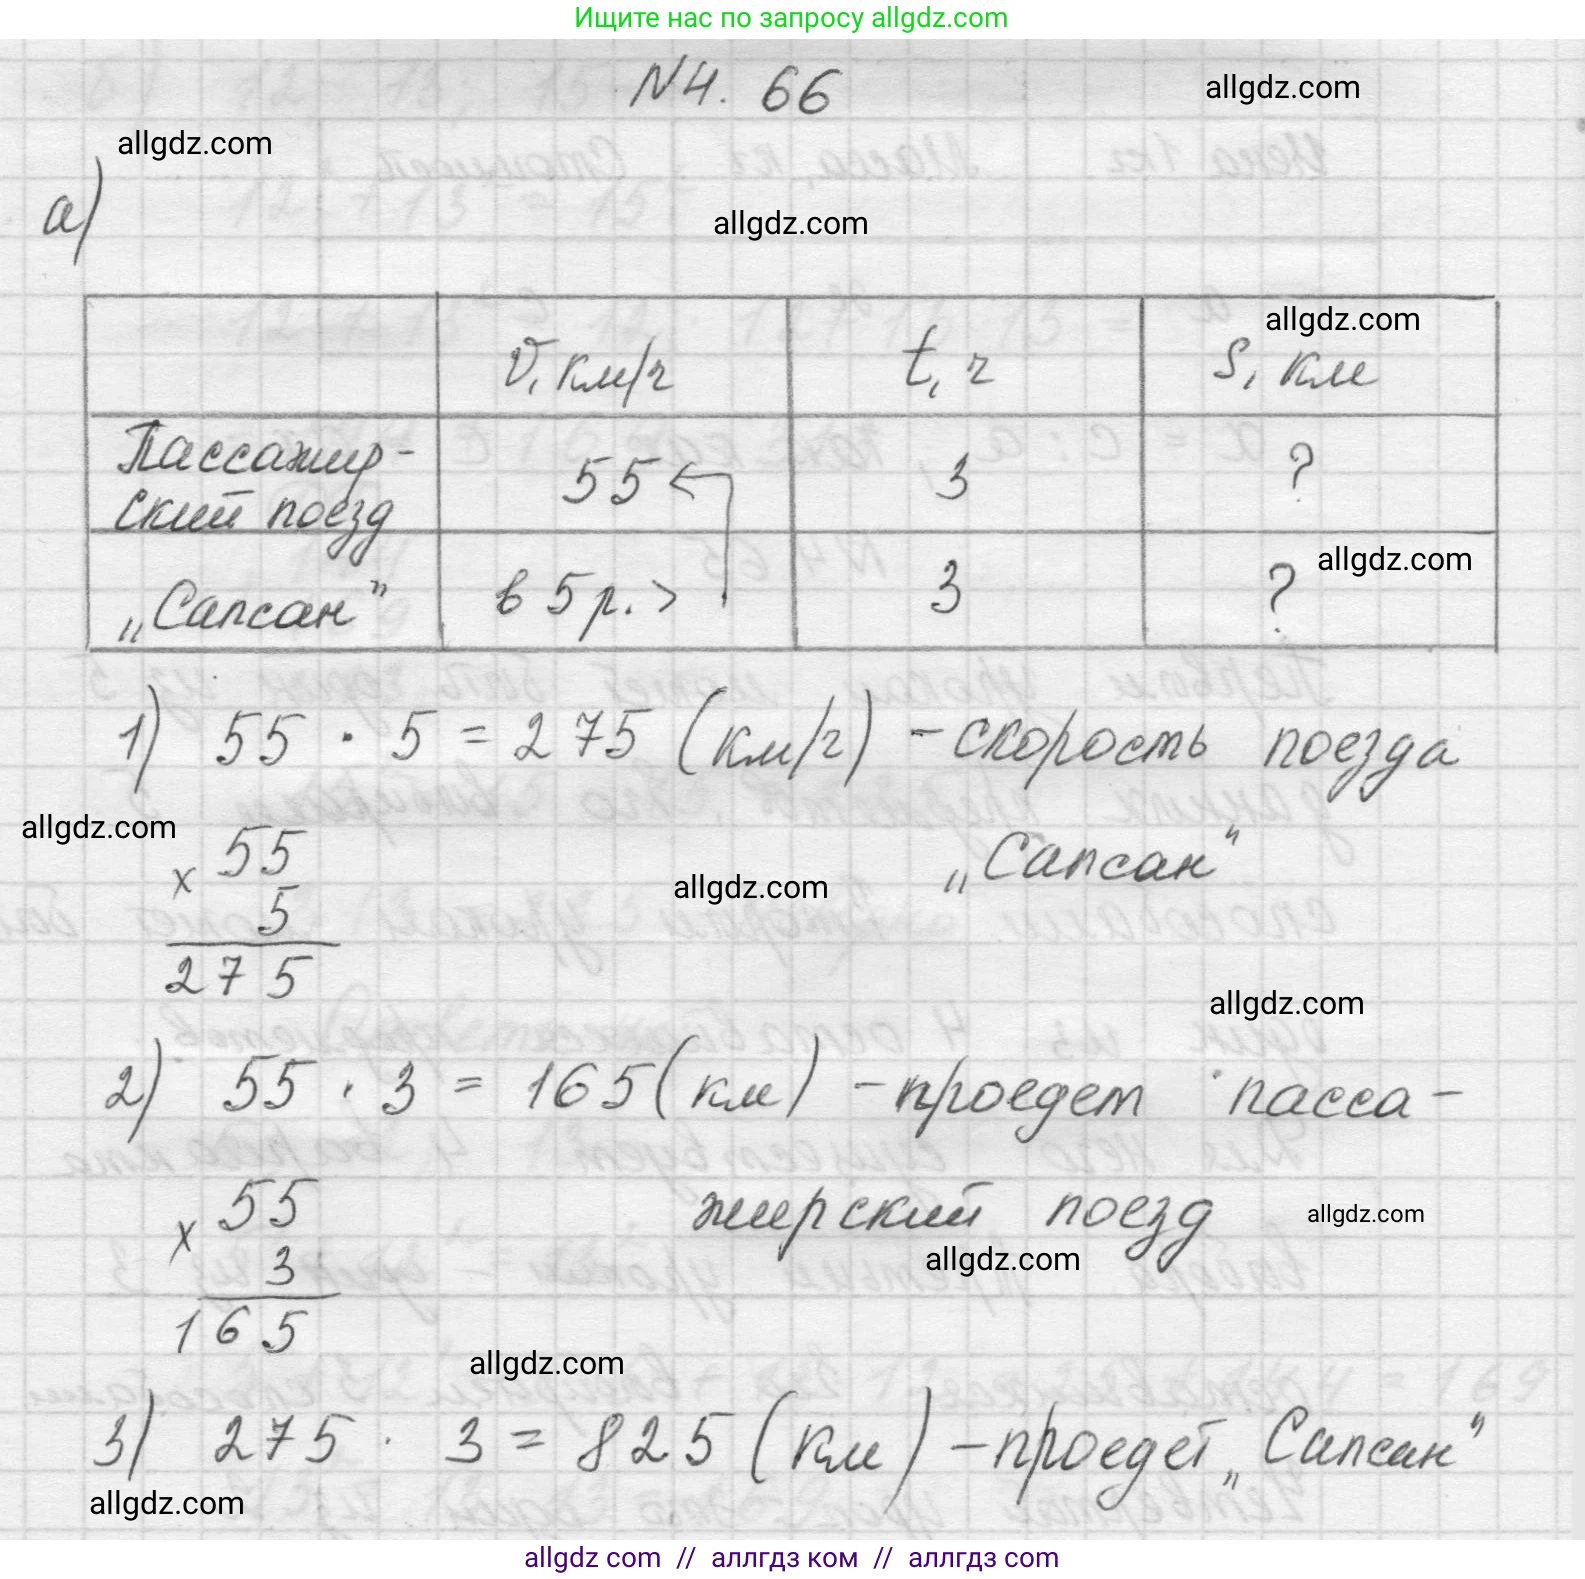 Ищите нас по запросу allgdz.com
№4. 66
allgdz.com
allgdz.com
а)
allgdz.com
allgdz.com
v, км/ч t, ч s, км
Пассажир-
ский поезд 55 3 ?
allgdz.com
„Сапсан" в 5 р. > 3 ?
1) 55 · 5 = 275 (км/ч) - скорость поезда
allgdz.com
„Сапсан"
× 55
5
275
allgdz.com
allgdz.com
2) 55 · 3 = 165 (км) - проедет пасса-
жирский поезд
allgdz.com
allgdz.com
× 55
3
165
allgdz.com
3) 275 · 3 = 825 (км) - проедет „Сапсан"
allgdz.com
allgdz com // аллгдз ком // аллгдз.com